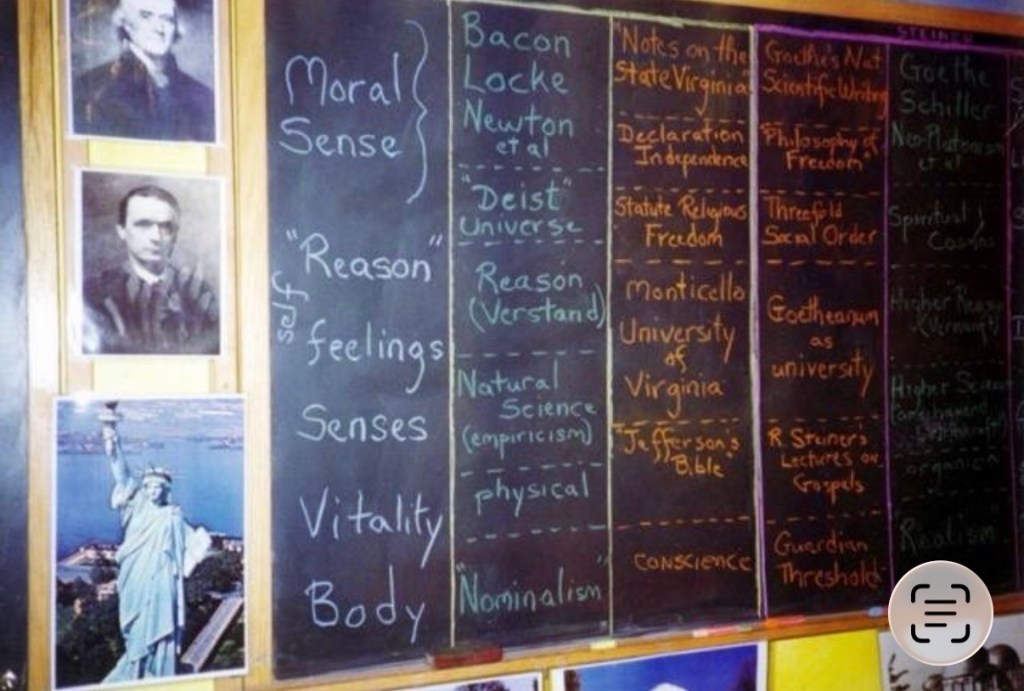 Moral
Sense
"Reason"
self
feelings
Senses
Vitality
Body
Bacon
Locke
Newton
et al
"Deist"
Universe
Reason
(Verstand)
Natural
Science
(empiricism)
physical
"Nominalism"
"Notes on the
State Virginia"
Declaration
Independence
Statute Religious
Freedom
Monticello
University
of
Virginia
"Jefferson's
Bible"
CONSCIENCE
STEINER
Goethe's Nat
Scientific Writing
"Philosophy of
Freedom"
Threefold
Social Order
Goetheanum
as
university
R Steiner's
Lectures on
Gospels
Guardian
Threshold
Goethe
Schiller
Neo-Platonism
et al
Spiritual
Cosmos
Higher Reason
(Vernunft)
Higher Science
organica
Realism"